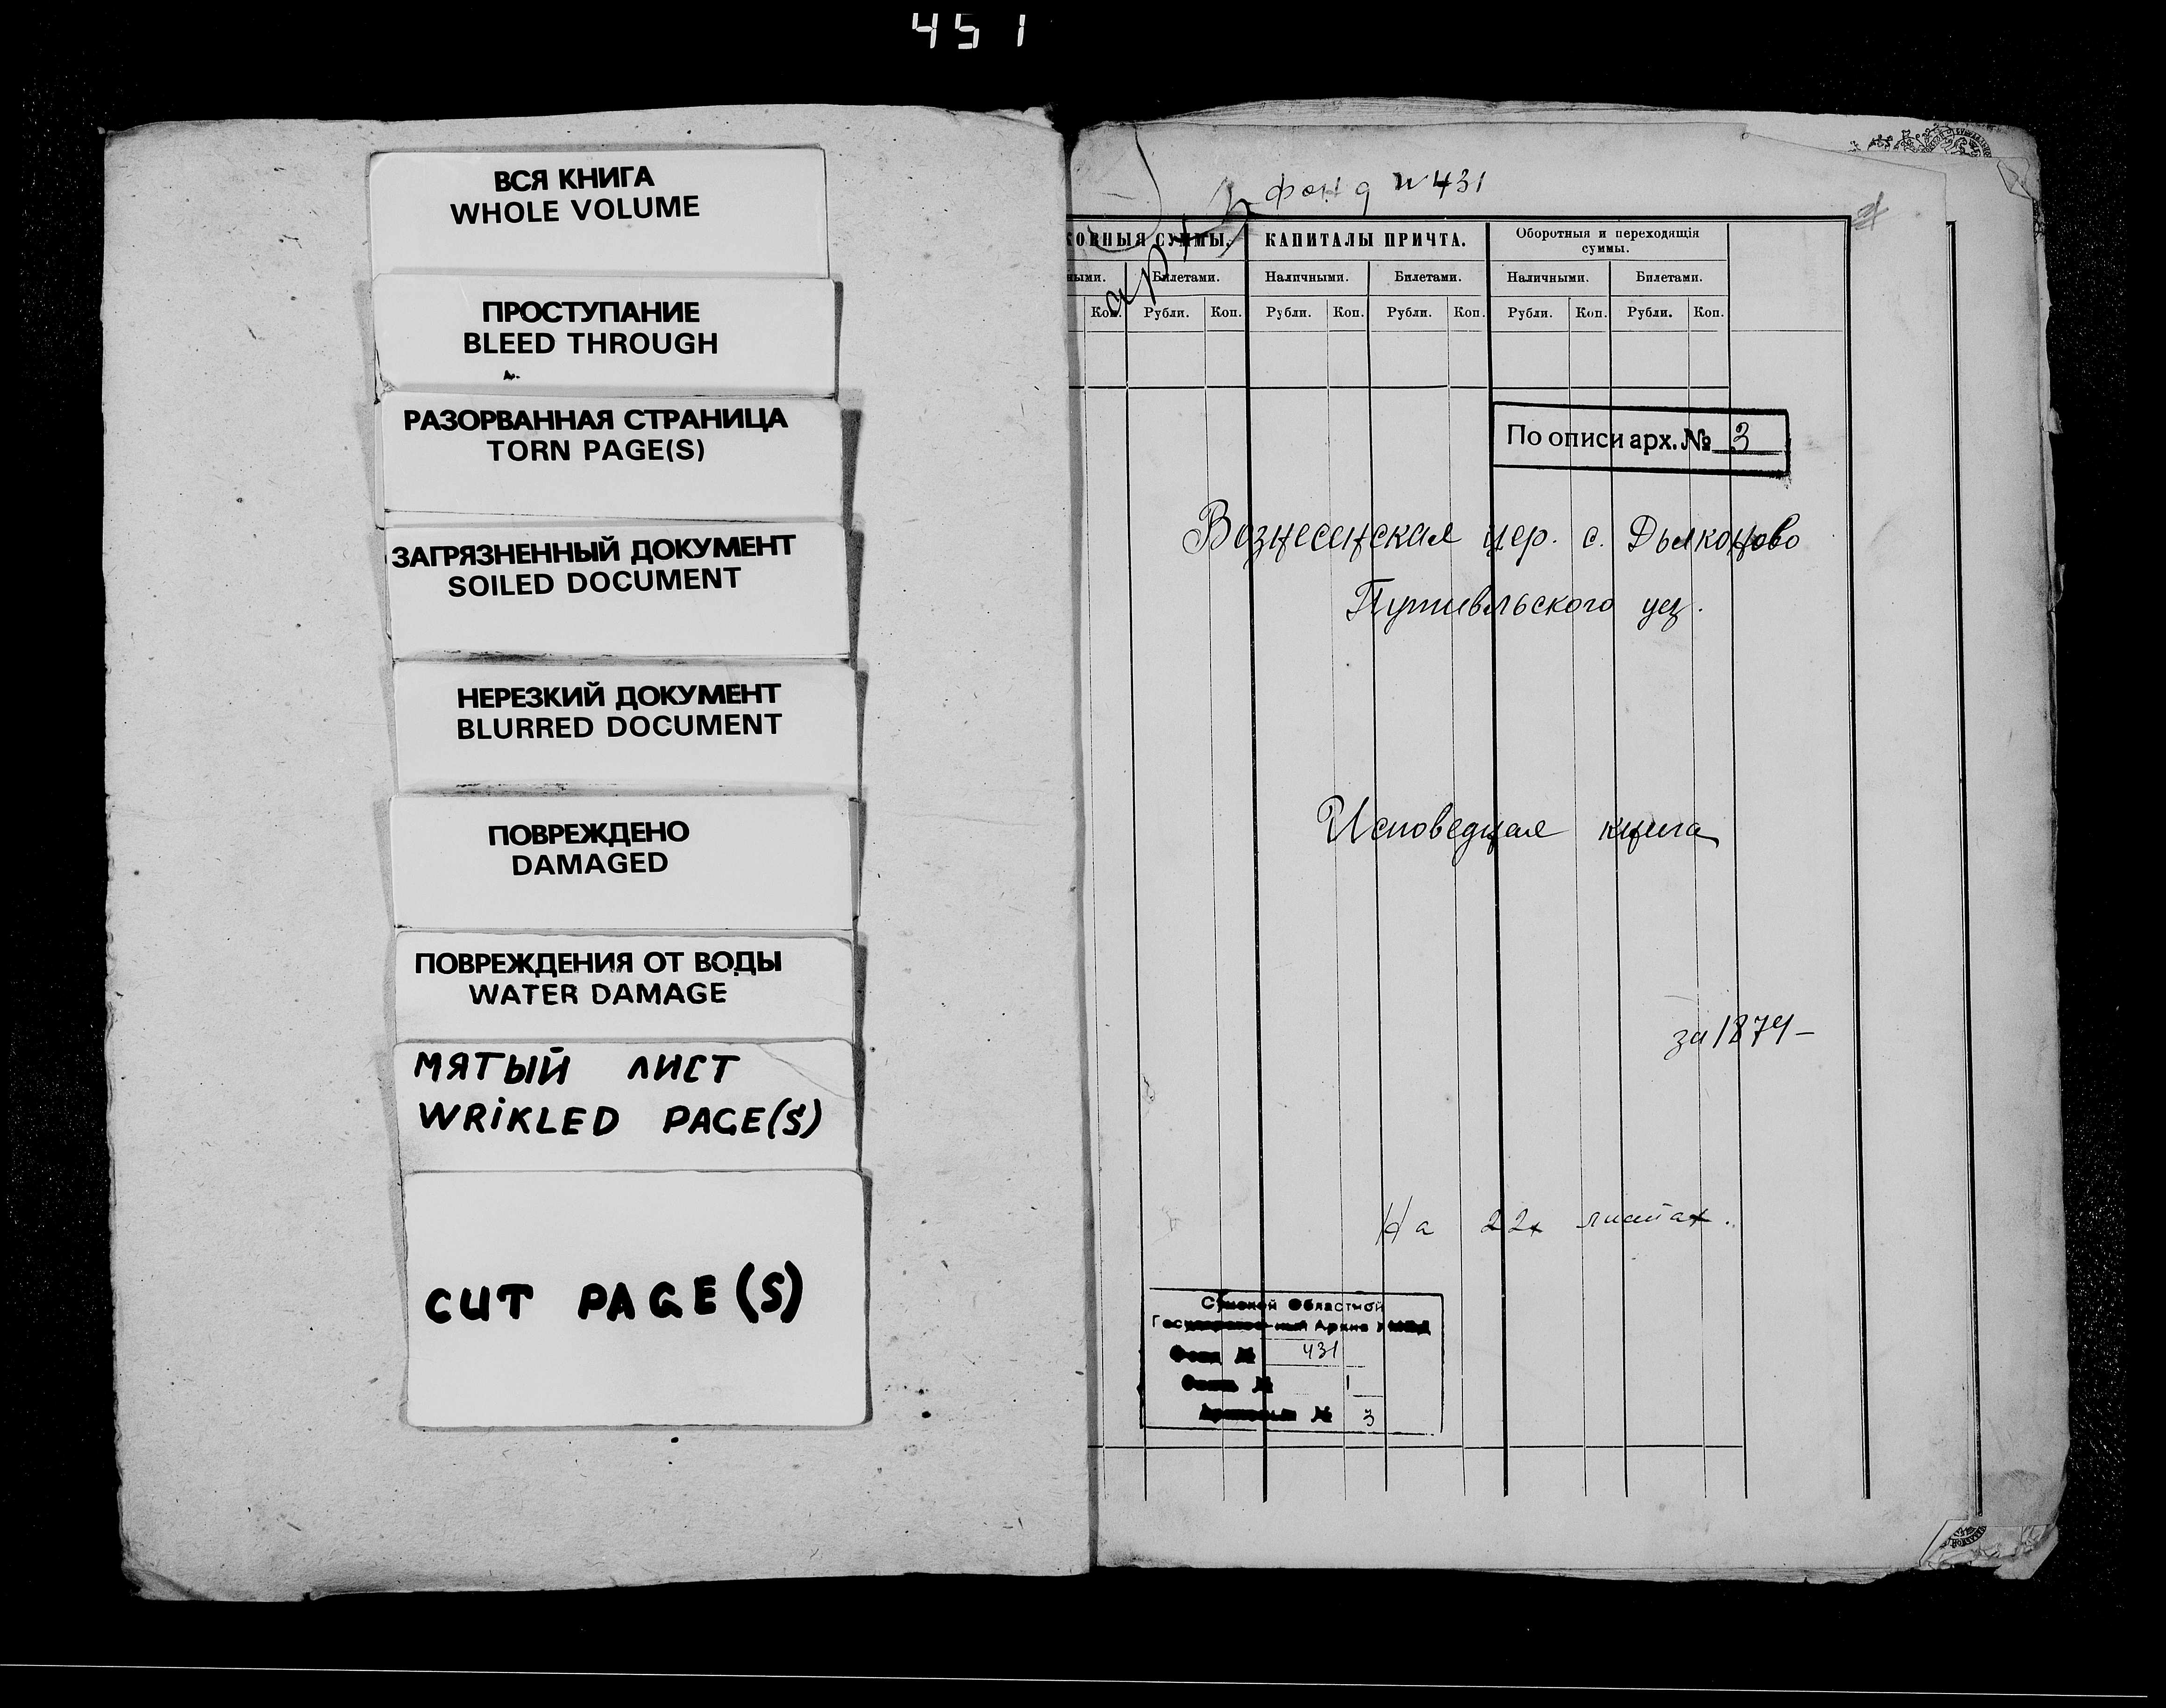 451
ВСЯ КНИГА
WHOLE VOLUME
ПРОСТУПАНИЕ
BLEED THROUGH
РАЗОРВАННАЯ СТРАНИЦА
TORN PAGE(S)
ЗАГРЯЗНЕННЫЙ ДОКУМЕНТ
SOILED DOCUMENT
НЕРЕЗКИЙ ДОКУМЕНТ
BLURRED DOCUMENT
ПОВРЕЖДЕНО
DAMAGED
ПОВРЕЖДЕНИЯ ОТ ВОДЫ
WATER DAMAGE
МЯТЫЙ ЛИСТ
WRIKLED PAGE(S)
CUT PAGE(S)
фонд N 431
КОВНЫЯ СУММЫ. КАПИТАЛЫ ПРИЧТА. Оборотныя и переходящія
суммы.
ными. Билетами. Наличными. Билетами. Наличными. Билетами.
Коп. Рубли. Коп. Рубли. Коп. Рубли. Коп. Рубли. Коп. Рубли. Коп.
По описи арх. № 3
Вознесенская цер. с. Дьяконово
Путивльского уез.
Исповедная книга
за 1874 -
На 22х листах.
Сумской Областной
Государственный Архив УМВД
Фонд № 431
Опись № 1
№ 3